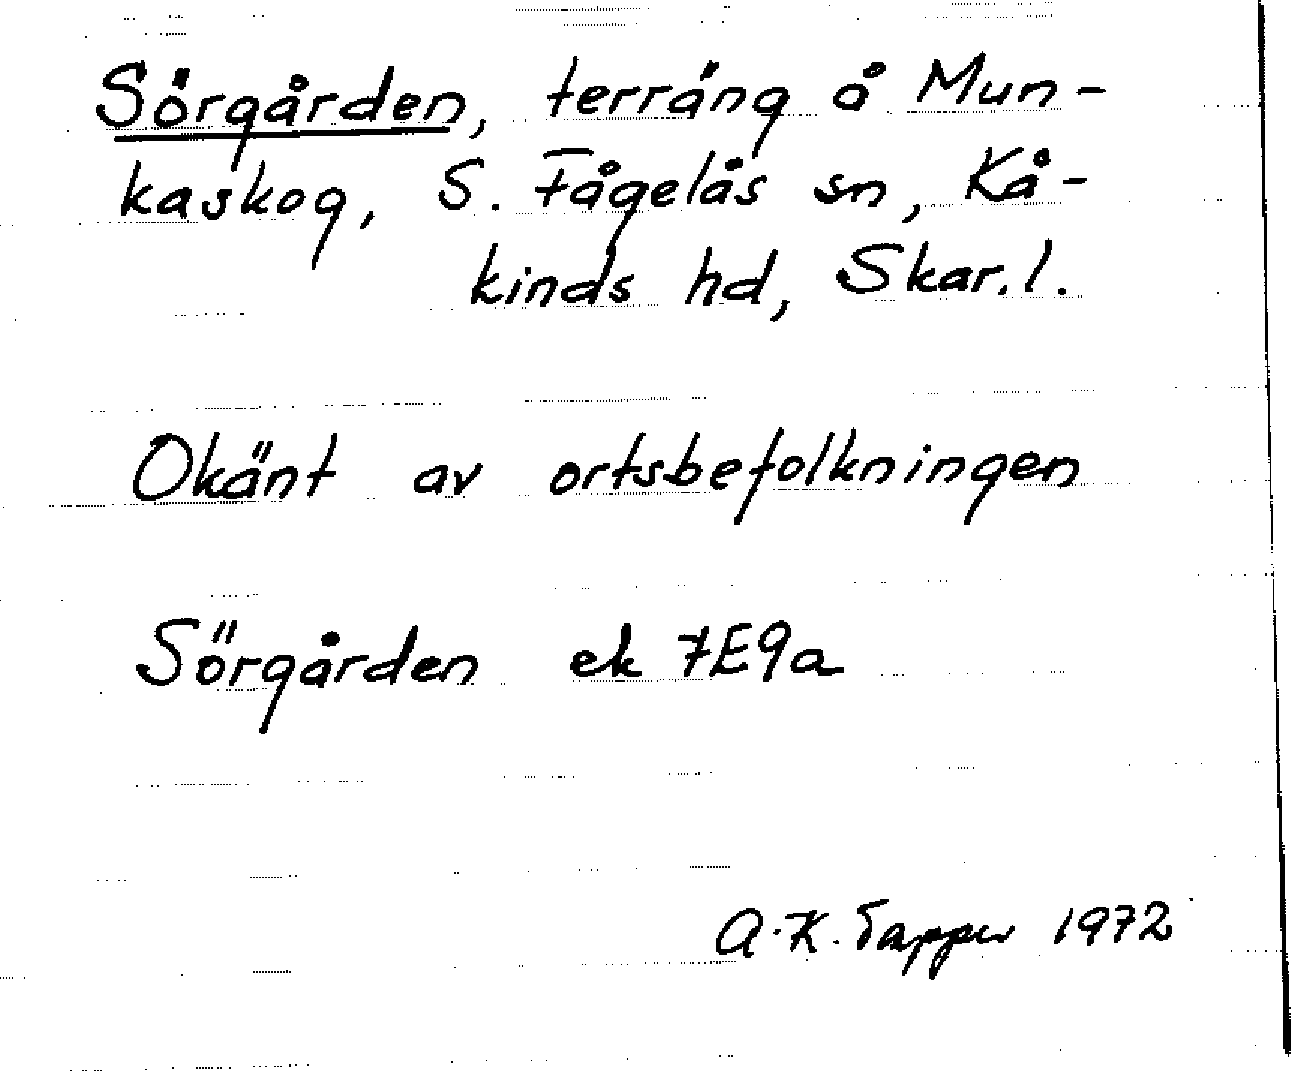 Sörgården, terräng å Mun-
kaskog, S. Fågelås sn, Kå-
kinds hd, Skar. l.
Okänt av ortsbefolkningen
Sörgården ek 7E9a
A.K. Tapper 1972